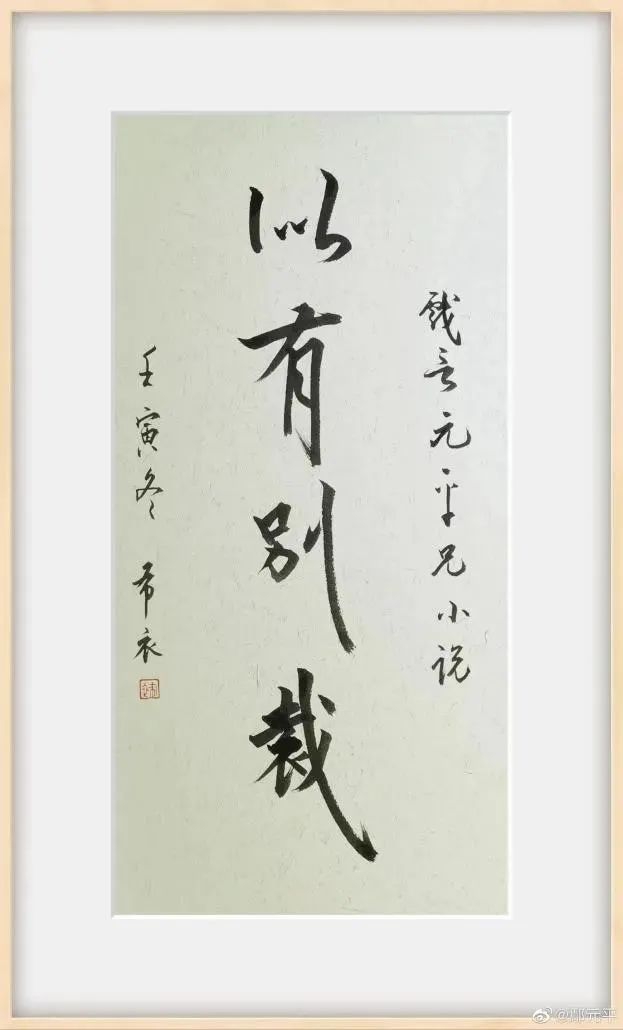 戏言元平兄小说
似有别裁
壬寅冬 希衣
@鄢元平